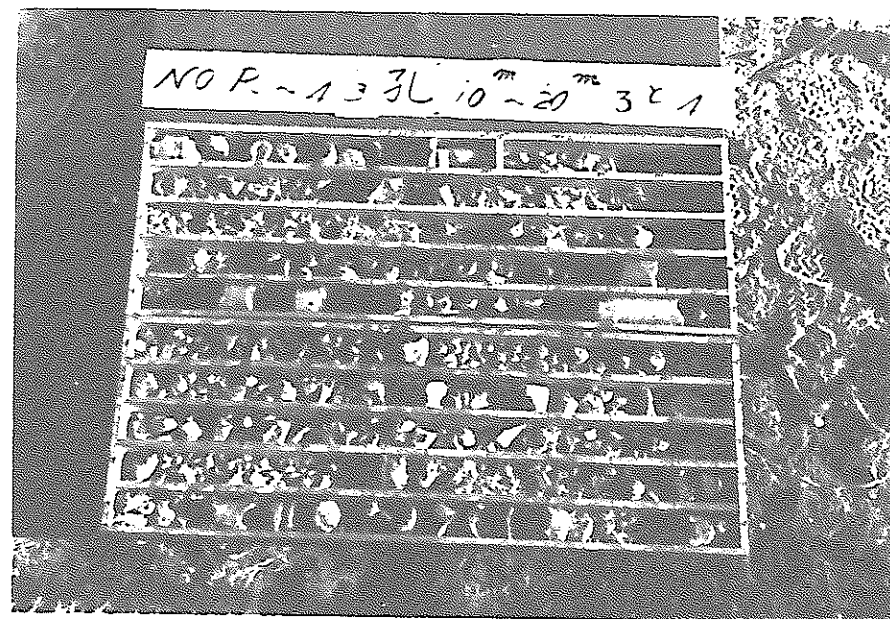 NO P.-1 3孔 10m~20m 3と1